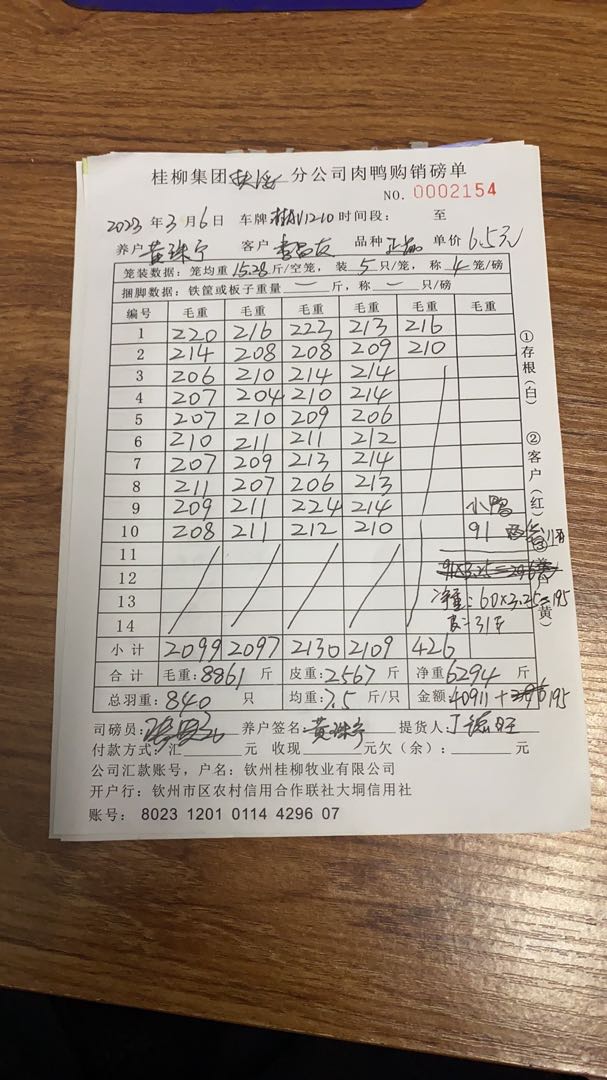 桂柳集团 分公司肉鸭购销磅单
NO. 0002154
2023 年 3 月 6 日 车牌 时间段: 至
养户 黄珠宁 客户 品种 单价 6.5元
笼装数据: 笼均重 15.28 斤/空笼, 装 5 只/笼, 称 4 笼/磅
捆脚数据: 铁筐或板子重量 — 斤, 称 — 只/磅
编号 毛重 毛重 毛重 毛重 毛重 毛重
1 220 216 223 213 216
2 214 208 208 209 210
3 206 210 214 214
4 207 204 210 214
5 207 210 209 206
6 210 211 211 212
7 207 209 213 214
8 211 207 206 213
9 209 211 224 214 小鸭
10 208 211 212 210 91
11
12
13 净重:60×3.25=195
14 皮=31斤
小计 2099 2097 2130 2109 426
合计 毛重:8861 斤 皮重:2567 斤 净重6294 斤
总羽重:840 只 均重:7.5 斤/只 金额:40911+195
司磅员: 养户签名:黄珠宁 提货人:丁德旺
付款方式:汇 元 收现 元欠(余): 元
公司汇款账号, 户名: 钦州桂柳牧业有限公司
开户行: 钦州市区农村信用合作联社大垌信用社
账号: 8023 1201 0114 4296 07
①存根(白)
②客户(红)